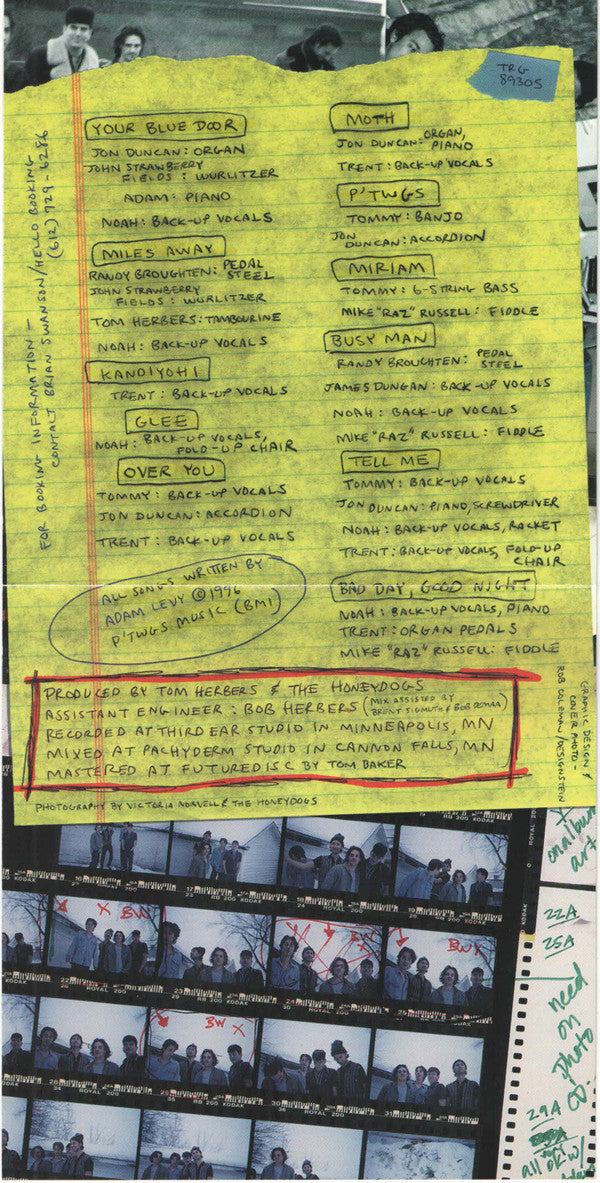 TRG
89305
FOR BOOKING INFORMATION —
CONTACT BRIAN SWANSON/HELLO BOOKING
(612) 729-6286
YOUR BLUE DOOR
JON DUNCAN: ORGAN
JOHN STRAWBERRY
FIELDS: WURLITZER
ADAM: PIANO
NOAH: BACK-UP VOCALS
MILES AWAY
RANDY BROUGHTEN: PEDAL
STEEL
JOHN STRAWBERRY
FIELDS: WURLITZER
TOM HERBERS: TAMBOURINE
NOAH: BACK-UP VOCALS
KANDIYOHI
TRENT: BACK-UP VOCALS
GLEE
NOAH: BACK-UP VOCALS,
FOLD-UP CHAIR
OVER YOU
TOMMY: BACK-UP VOCALS
JON DUNCAN: ACCORDION
TRENT: BACK-UP VOCALS
ALL SONGS WRITTEN BY
ADAM LEVY © 1996
P'TWGS MUSIC (BMI)
MOTH
JON DUNCAN: ORGAN,
PIANO
TRENT: BACK-UP VOCALS
P'TWGS
TOMMY: BANJO
JON
DUNCAN: ACCORDION
MIRIAM
TOMMY: 6-STRING BASS
MIKE "RAZ" RUSSELL: FIDDLE
BUSY MAN
RANDY BROUGHTEN: PEDAL
STEEL
JAMES DUNGAN: BACK-UP VOCALS
NOAH: BACK-UP VOCALS
MIKE "RAZ" RUSSELL: FIDDLE
TELL ME
TOMMY: BACK-UP VOCALS
JON DUNCAN: PIANO, SCREWDRIVER
NOAH: BACK-UP VOCALS, RACKET
TRENT: BACK-UP VOCALS, FOLD-UP
CHAIR
BAD DAY, GOOD NIGHT
NOAH: BACK-UP VOCALS, PIANO
TRENT: ORGAN PEDALS
MIKE "RAZ" RUSSELL: FIDDLE
PRODUCED BY TOM HERBERS & THE HONEYDOGS
ASSISTANT ENGINEER: BOB HERBERS (MIX ASSISTED BY
BRENT SIGMUTH & BOB DEMAA)
RECORDED AT THIRD EAR STUDIO IN MINNEAPOLIS, MN
MIXED AT PACHYDERM STUDIO IN CANNON FALLS, MN
MASTERED AT FUTUREDISC BY TOM BAKER
GRAPHIC DESIGN &
COVER PHOTO —
ROB COLEMAN/DESIGNSTEIN
PHOTOGRAPHY BY VICTORIA NORVELL & THE HONEYDOGS
on album
art
22A
25A
need
on
photo
CD.
29A
all
ok w/
BW
BW
BW